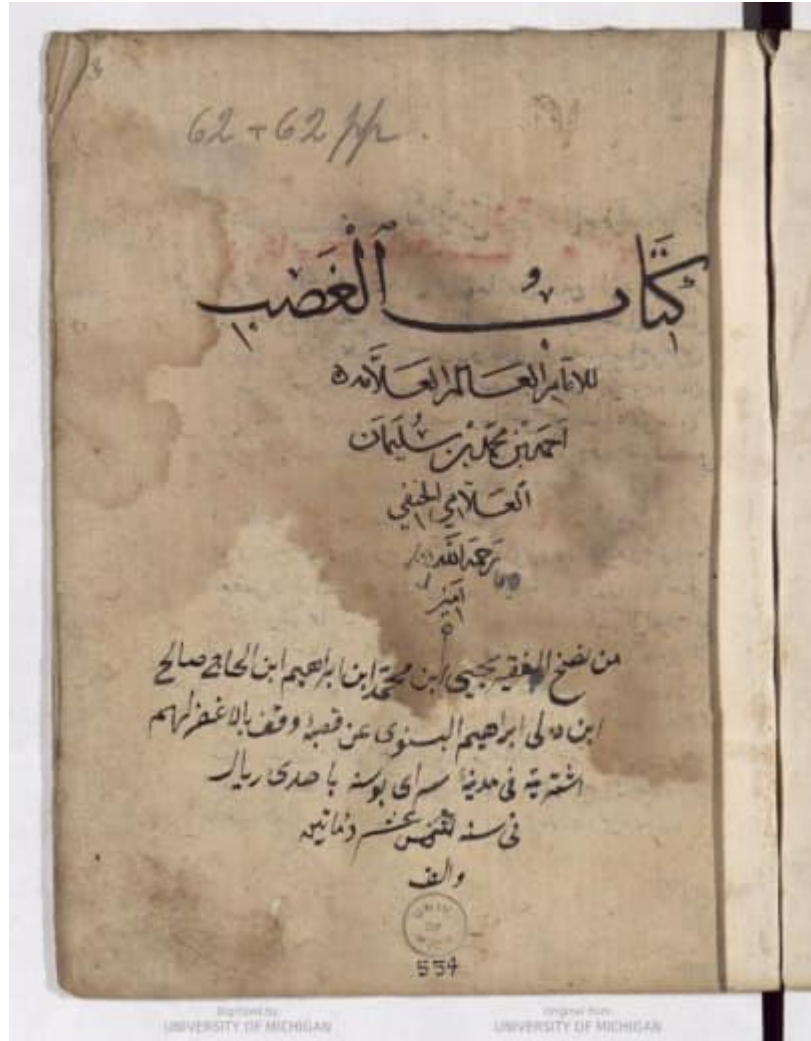 62 + 62 pp.
كتاب الغصب
للامام العالم العلامة
احمد بن محمد بن سليمان
الحنفي
رحمه الله
امين
من الفقير يحيى ابن محمد ابن ابراهيم ابن الحاجى صالح
ابن ابراهيم البسنوى عن قصبة وقف بالا غفر لهم
اشتريته فى مدينة سراى بوسنه ريال
فى سنه عشر ومأتين
والف
UNIV
OF
MICH
554
Digitized by
UNIVERSITY OF MICHIGAN
Original from
UNIVERSITY OF MICHIGAN